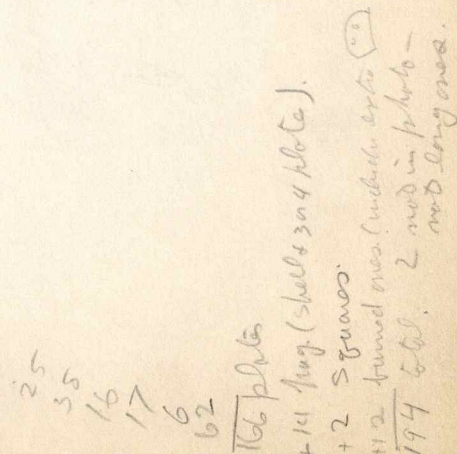 25
35
16
17
6
62
166 plates
+ 14 frag. (shell + 3 or 4 plates).
+ 2 squares.
+12 burned ones. (includes extra
194 total. 2 not in photo –
not long ones.